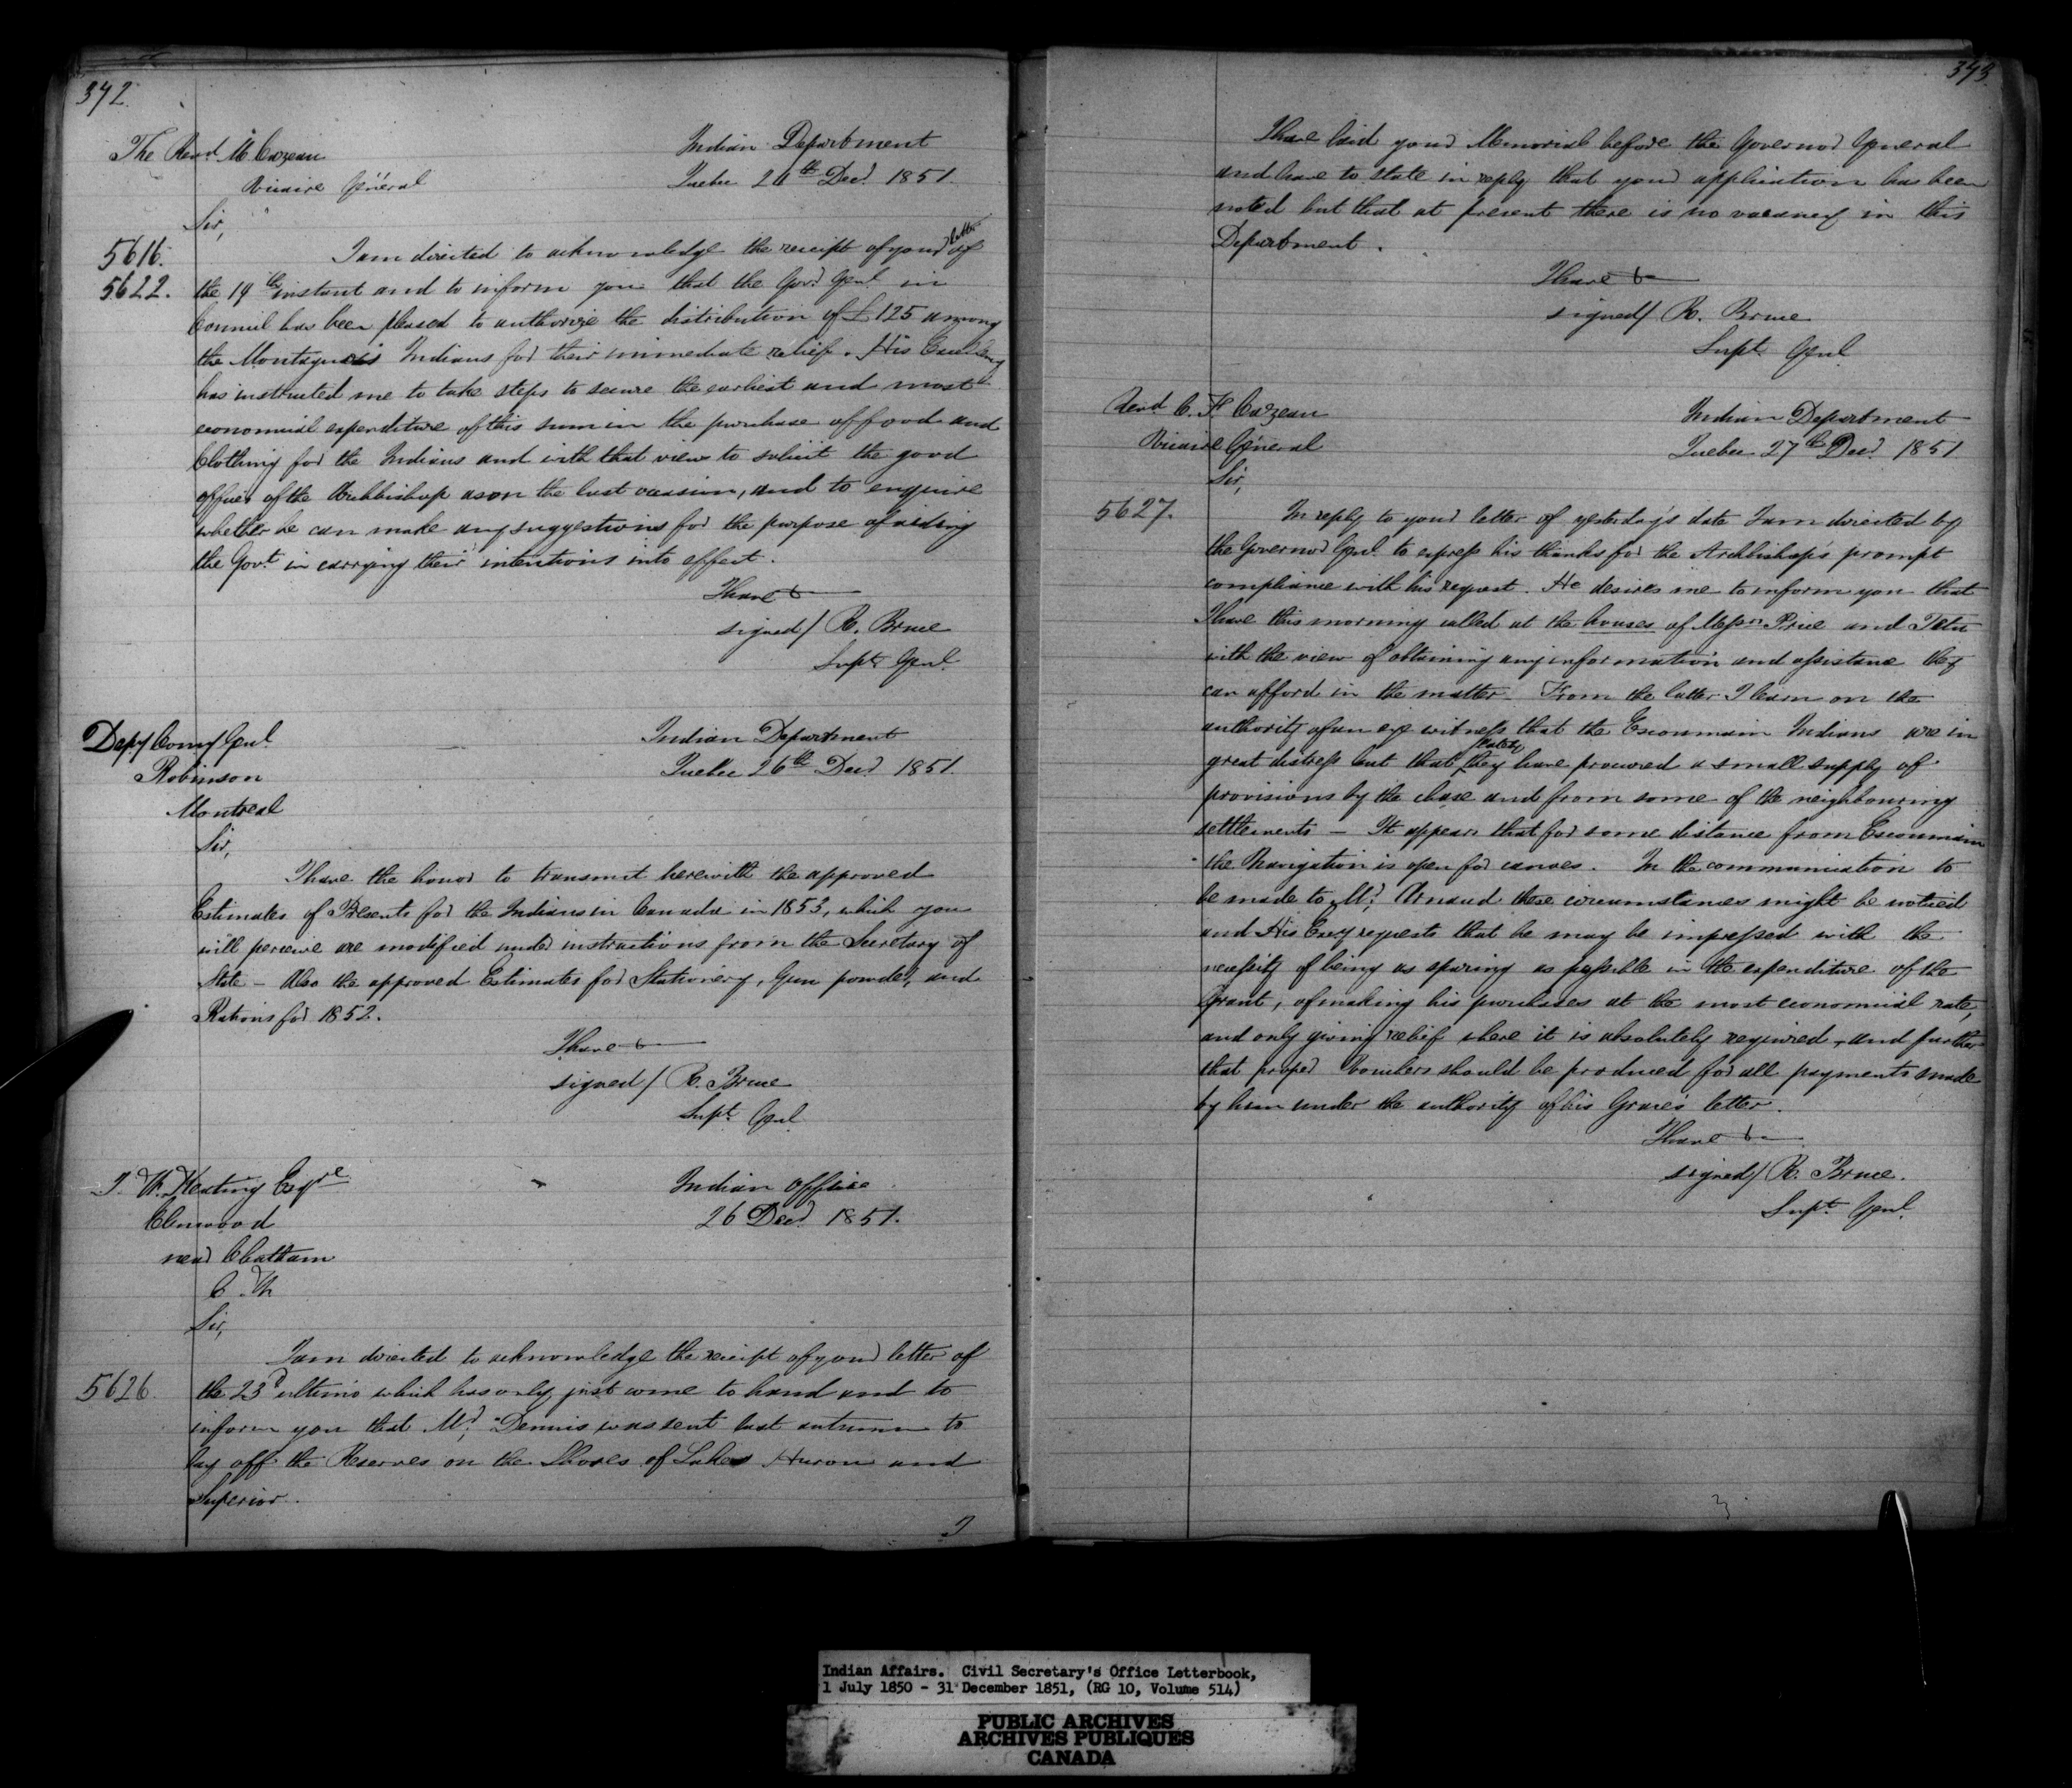 372.
The Revd. M. Cazeau
Vicaire Général
Indian Department
Quebec 26th Decr. 1851.
Sir,
5616.
5622.
I am directed to acknowledge the receipt of your letter of
the 19th instant and to inform you that the Govr. Genl. in
Council has been pleased to authorize the distribution of £125 among
the Montagnais Indians for their immediate relief. His Excellency
has instructed me to take steps to secure the earliest and most
economical expenditure of this sum in the purchase of food and
Clothing for the Indians and with that view to solicit the good
offices of the Archbishop as on the last occasion, and to enquire
whether he can make any suggestions for the purpose of aiding
the Govt. in carrying their intentions into effect.
I have &
signed/ R. Bruce
Supt. Genl.
Depy Comy Genl.
Robinson
Montreal
Indian Department
Quebec 26th Decr. 1851.
Sir,
I have the honor to transmit herewith the approved
Estimates of Presents for the Indians in Canada in 1853, which you
will perceive are modified under instructions from the Secretary of
State - Also the approved Estimates for Stationery, Gun powder, and
Rations for 1852.
I have &
signed/ R. Bruce
Supt. Genl.
J. W. Keating Esqre
near Chatham
C. W.
Indian Office
26 Decr. 1851.
Sir,
5626.
I am directed to acknowledge the receipt of your letter of
the 23d ultimo which has only just come to hand and to
inform you that Mr. Dennis was sent last autumn to
lay off the Reserves on the Shores of Lakes Huron and
Superior.
I
373.
I have laid your Memorial before the Governor General
and have to state in reply that your application has been
noted but that at present there is no vacancy in this
Department.
I have &
signed/ R. Bruce
Supt. Genl.
Revd. C. F. Cazeau
Vicaire Général
Indian Department
Quebec 27th Decr. 1851
Sir,
5627.
In reply to your letter of yesterday's date I am directed by
the Governor Genl. to express his thanks for the Archbishop's prompt
compliance with his request. He desires me to inform you that
I have this morning called at the houses of Messrs. Price and Tetu
with the view of obtaining any information and assistance they
can afford in the matter. From the latter I learn on the
authority of an eye witness that the Escoumain Indians are in
great distress but that lately they have procured a small supply of
provisions by the chase and from some of the neighbouring
settlements - It appears that for some distance from Escoumain
the Navigation is open for canoes. In the communication to
be made to Mr. Arnaud these circumstances might be noticed
and His Excy requests that he may be impressed with the
necessity of being as sparing as possible in the expenditure of the
Grant, of making his purchases at the most economical rate,
and only giving relief where it is absolutely required, and further
that proper Vouchers should be produced for all payments made
by him under the authority of his Grace's letter.
I have &
signed/ R. Bruce.
Supt. Genl.
3
Indian Affairs. Civil Secretary's Office Letterbook,
1 July 1850 - 31 December 1851, (RG 10, Volume 514)
PUBLIC ARCHIVES
ARCHIVES PUBLIQUES
CANADA